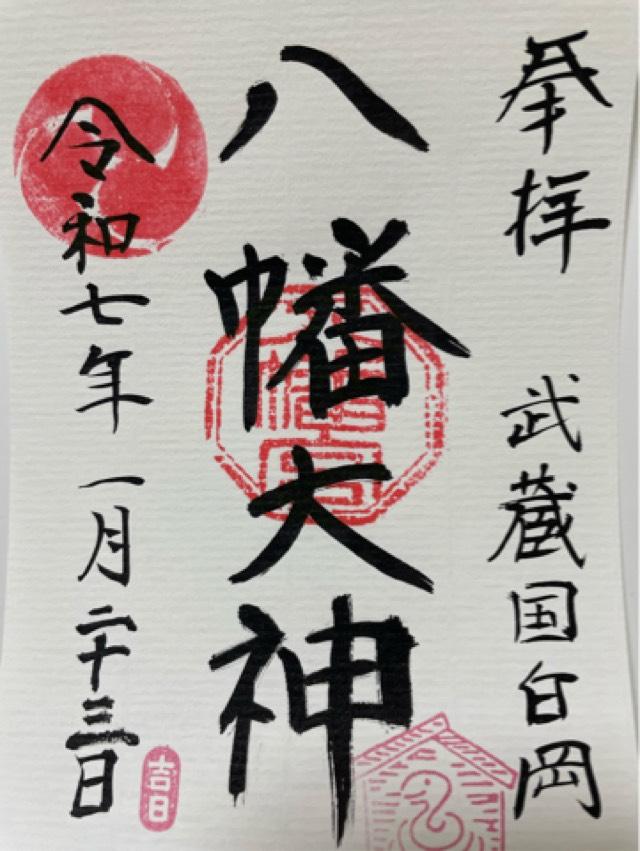 奉拝
武蔵国白岡
八幡大神
令和七年一月二十三日
吉日